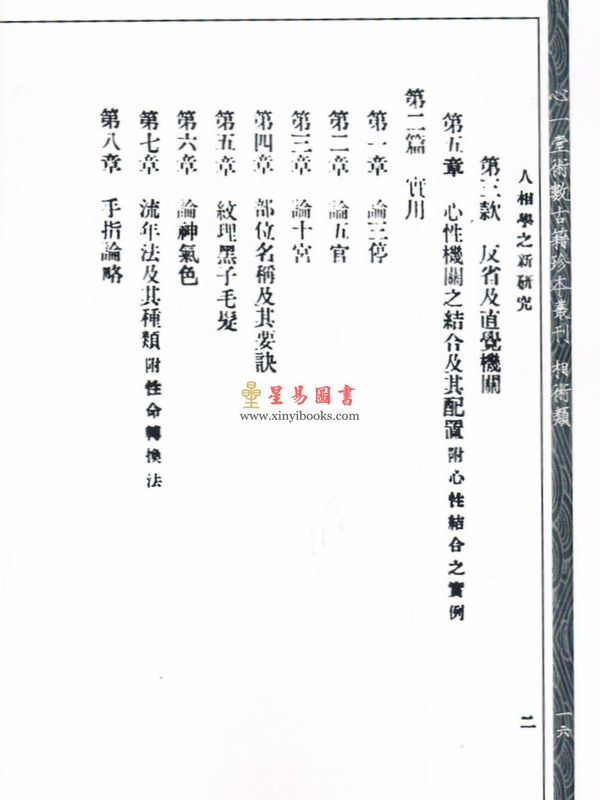 心一堂術數古籍珍本叢刊 相術類
一六
人相學之新研究
二
第三款 反省及直覺機關
第五章 心性機關之結合及其配置 附心性結合之實例
第二篇 實用
第一章 論三停
第二章 論五官
第三章 論十宮
第四章 部位名稱及其要訣
第五章 紋理黑子毛髮
第六章 論神氣色
第七章 流年法及其種類 附性命轉換法
第八章 手指論略
星易圖書
www.xinyibooks.com